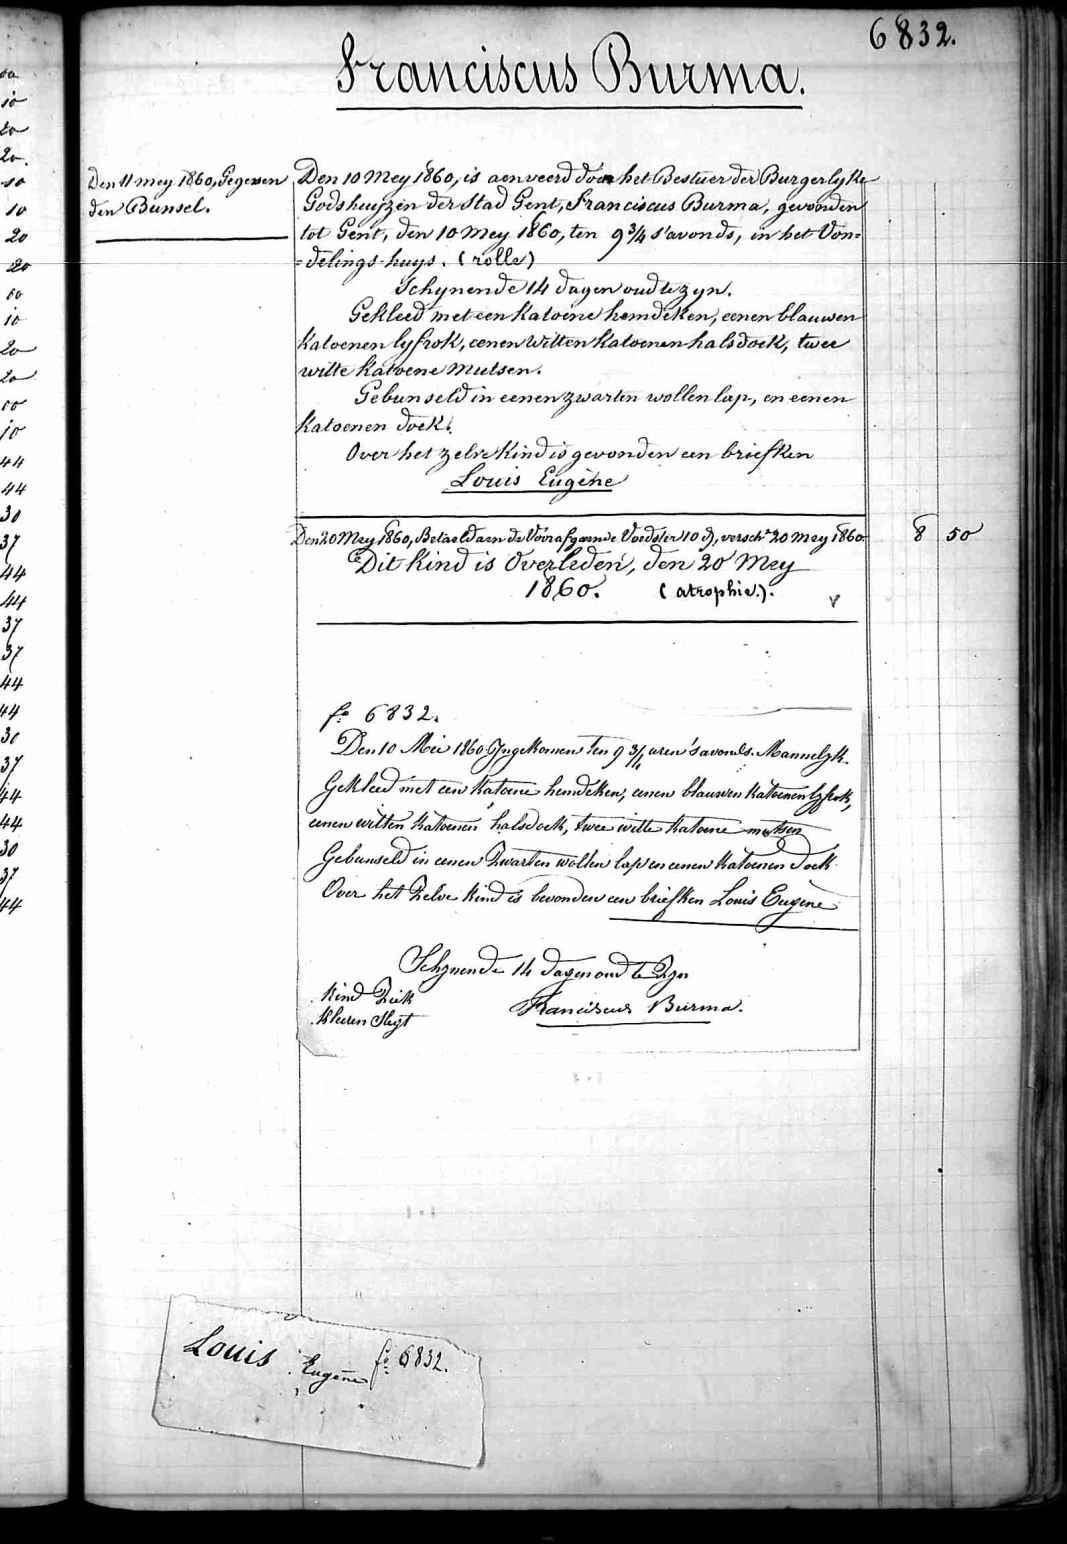 6832.
Franciscus Burma.
Den 11 mey 1860, Gegeven
den Bunsel.
Den 10 Mey 1860, is aenveerd door het Bestuer der Burgerlyke
Godshuyzen der Stad Gent, Franciscus Burma, gevonden
tot Gent, den 10 mey 1860, ten 9 3/4 s'avonds, in het Von=
=delings-huys. (rolle)
Schynende 14 dagen oud te zyn.
Gekleed met een Katoene hemdeken, eenen blauwen
Katoenen lyfrok, eenen witten Katoenen halsdoek, twee
witte Katoene mutsen.
Gebunseld in eenen zwarten wollen lap, en eenen
Katoenen doek.
Over het zelve Kind is gevonden een briefken
Louis Eugène
Den 20 Mey 1860, Betaeld aen de Voorafgaende Voedster 10 d, versch.n 20 mey 1860
8 50
Dit Kind is Overleden, den 20 Mey
1860. (atrophie.).
fo. 6832.
Den 10 Mei 1860 Ingekomen ten 9 3/4 uren 's avonds. Mannelyk.
Gekleed met een Katoene hemdeken, eenen blauwen Katoenen lyfrok,
eenen witten Katoenen halsdoek, twee witte Katoene mutsen
Gebunseld in eenen Zwarten wollen lap en eenen Katoenen doek.
Over het Zelve Kind is bevonden een briefken Louis Eugène
Schynende 14 dagen oud te Zyn
Kind Ziek
Kleeren Slegt
Franciscus Burma.
Louis Eugène fo. 6832.
00
10
20
20.
10
10
20
20
00
10
20
20
00
10
44
44
30
37
44
44
37
37
44
44
30
37
44
44
30
37
44